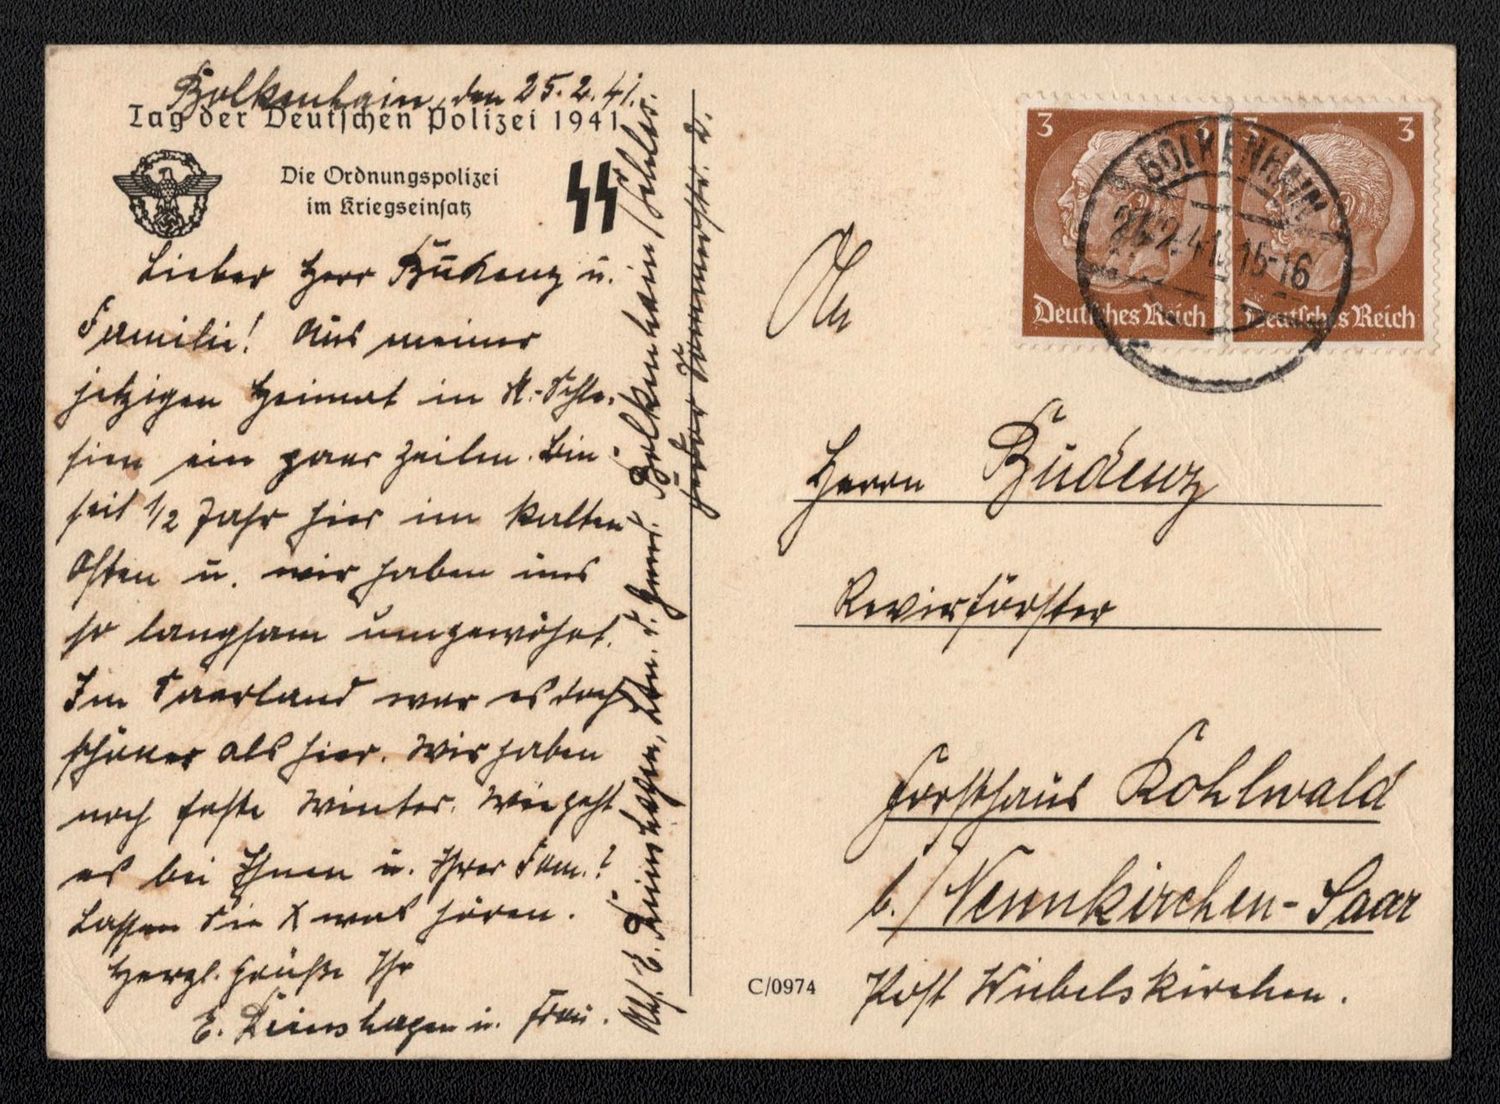 Bolkenhain, den 25.2.41.
Tag der Deutschen Polizei 1941
Die Ordnungspolizei
im Kriegseinsatz
Lieber Herr Büdenz u.
Familie! Aus meiner
jetzigen Heimat in N.-Schle-
sien ein paar Zeilen. Bin
seit 1/2 Jahr hier im kalten
Osten u. wir haben uns
so langsam umgewöhnt.
Im Saarland war es doch
schöner als hier. Wir haben
noch feste Winter. Wie geht
es bei Ihnen u. Ihrer Fam.?
Lassen Sie X was hören.
Herzl. Grüße Ihr
E. u. Frau.
Abs. E. d. Gend. Bolkenhain/Schles.
An
Herrn Büdenz
Revierförster
Forsthaus Kohlwald
b./Neunkirchen-Saar
Post Wiebelskirchen.
C/0974
3 3
3 3
Deutsches Reich
Deutsches Reich
BOLKENHAIN
2.41.15-16